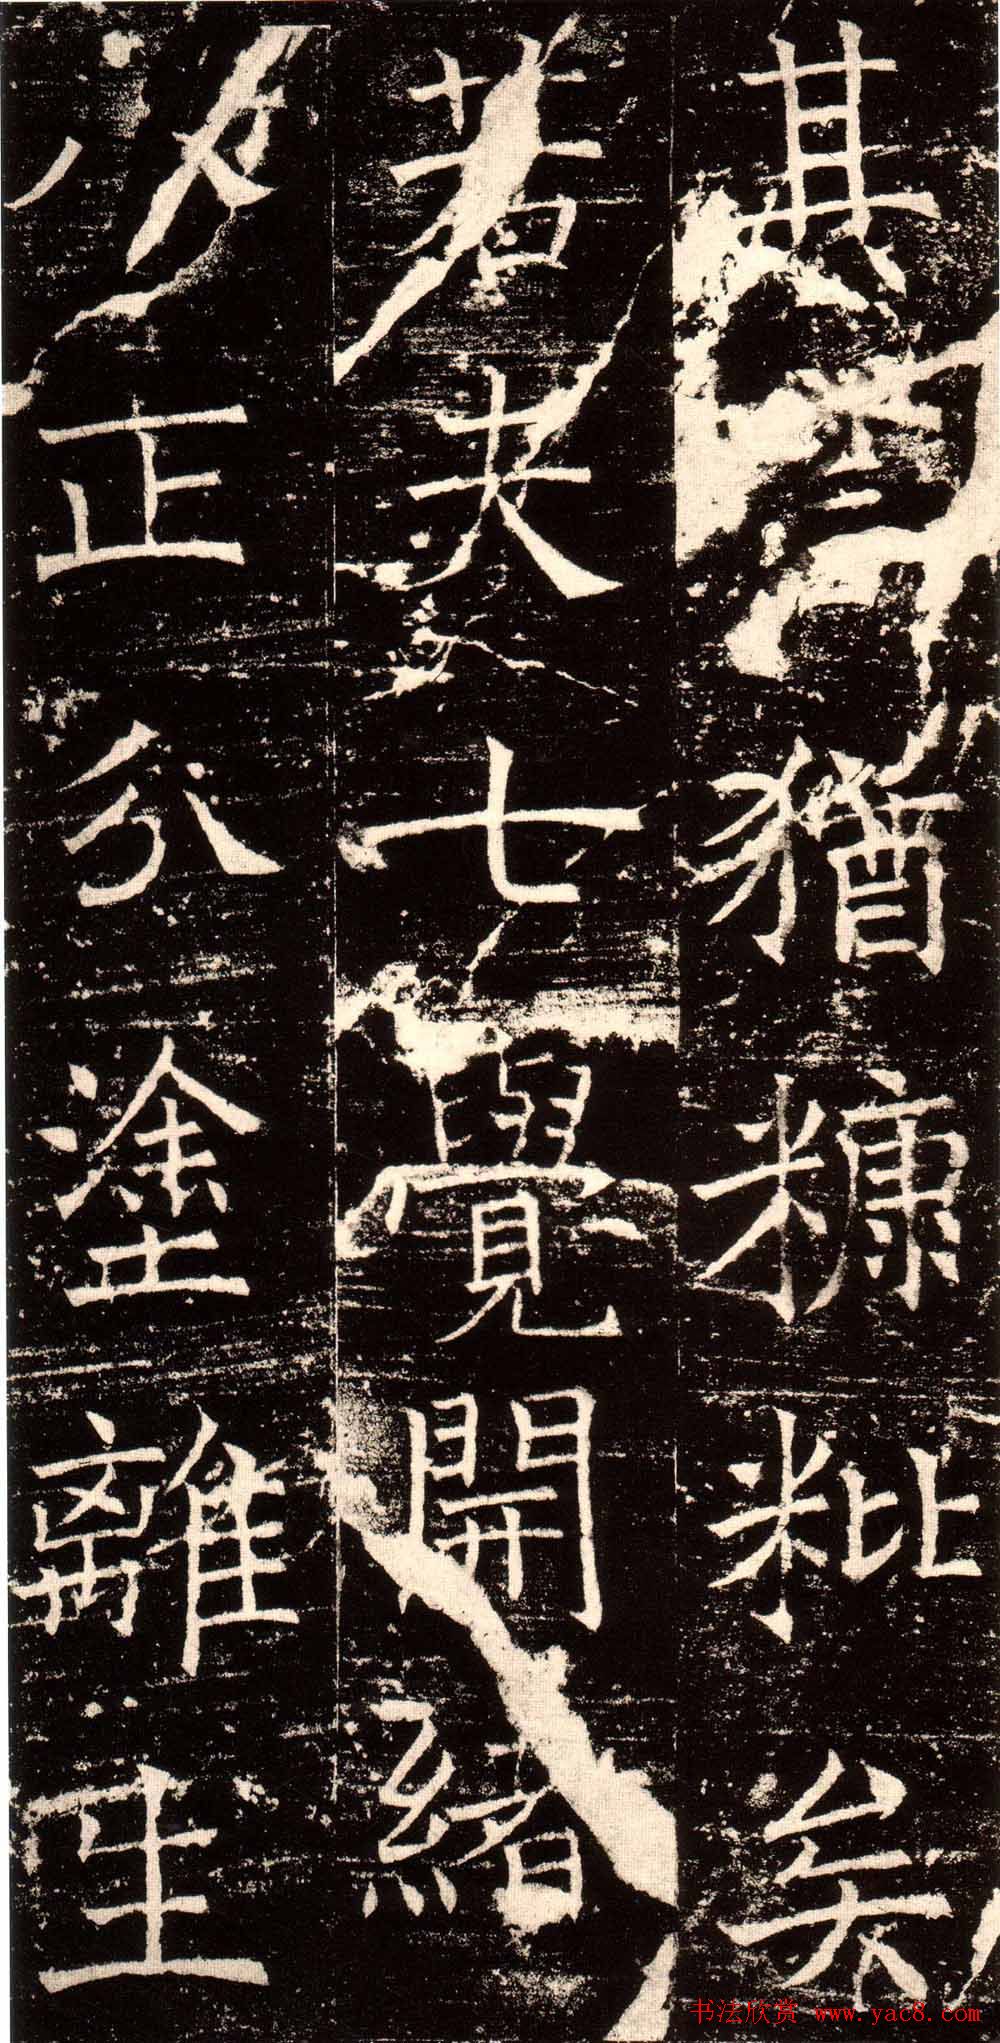 其猶糠粃矣
若夫七覺開緒
八正分塗離生
书法欣赏 www.yac8.com